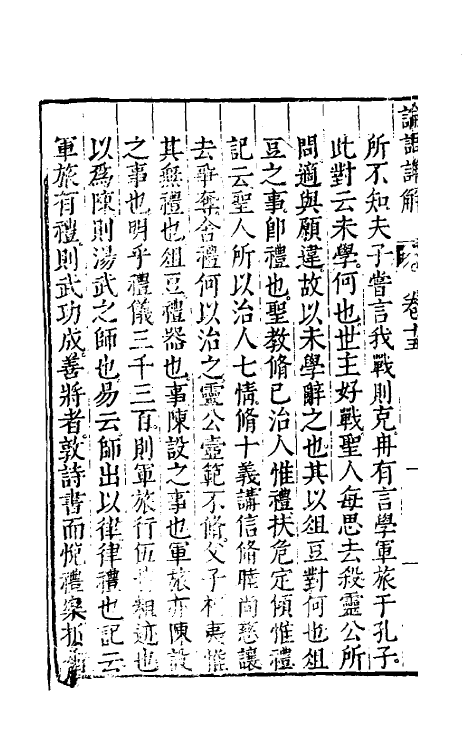 論語詳解 卷十五
所不知夫子嘗言我戰則克冉有言學軍旅于孔子
此對云未學何也世主好戰聖人每思去殺靈公所
問適與願違故以未學辭之也其以俎豆對何也俎
豆之事卽禮也聖教脩已治人惟禮扶危定傾惟禮
記云聖人所以治人七情脩十義講信脩睦尚慈讓
去爭奪舍禮何以治之靈公壼範不脩父子相夷惟
其無禮也俎豆禮器也事陳設之事也軍旅亦陳設
之事也明乎禮儀三千三百則軍旅行伍粗迹也
以爲陳則湯武之師也易云師出以律律禮也記云
軍旅有禮則武功成善將者敦詩書而悅禮案